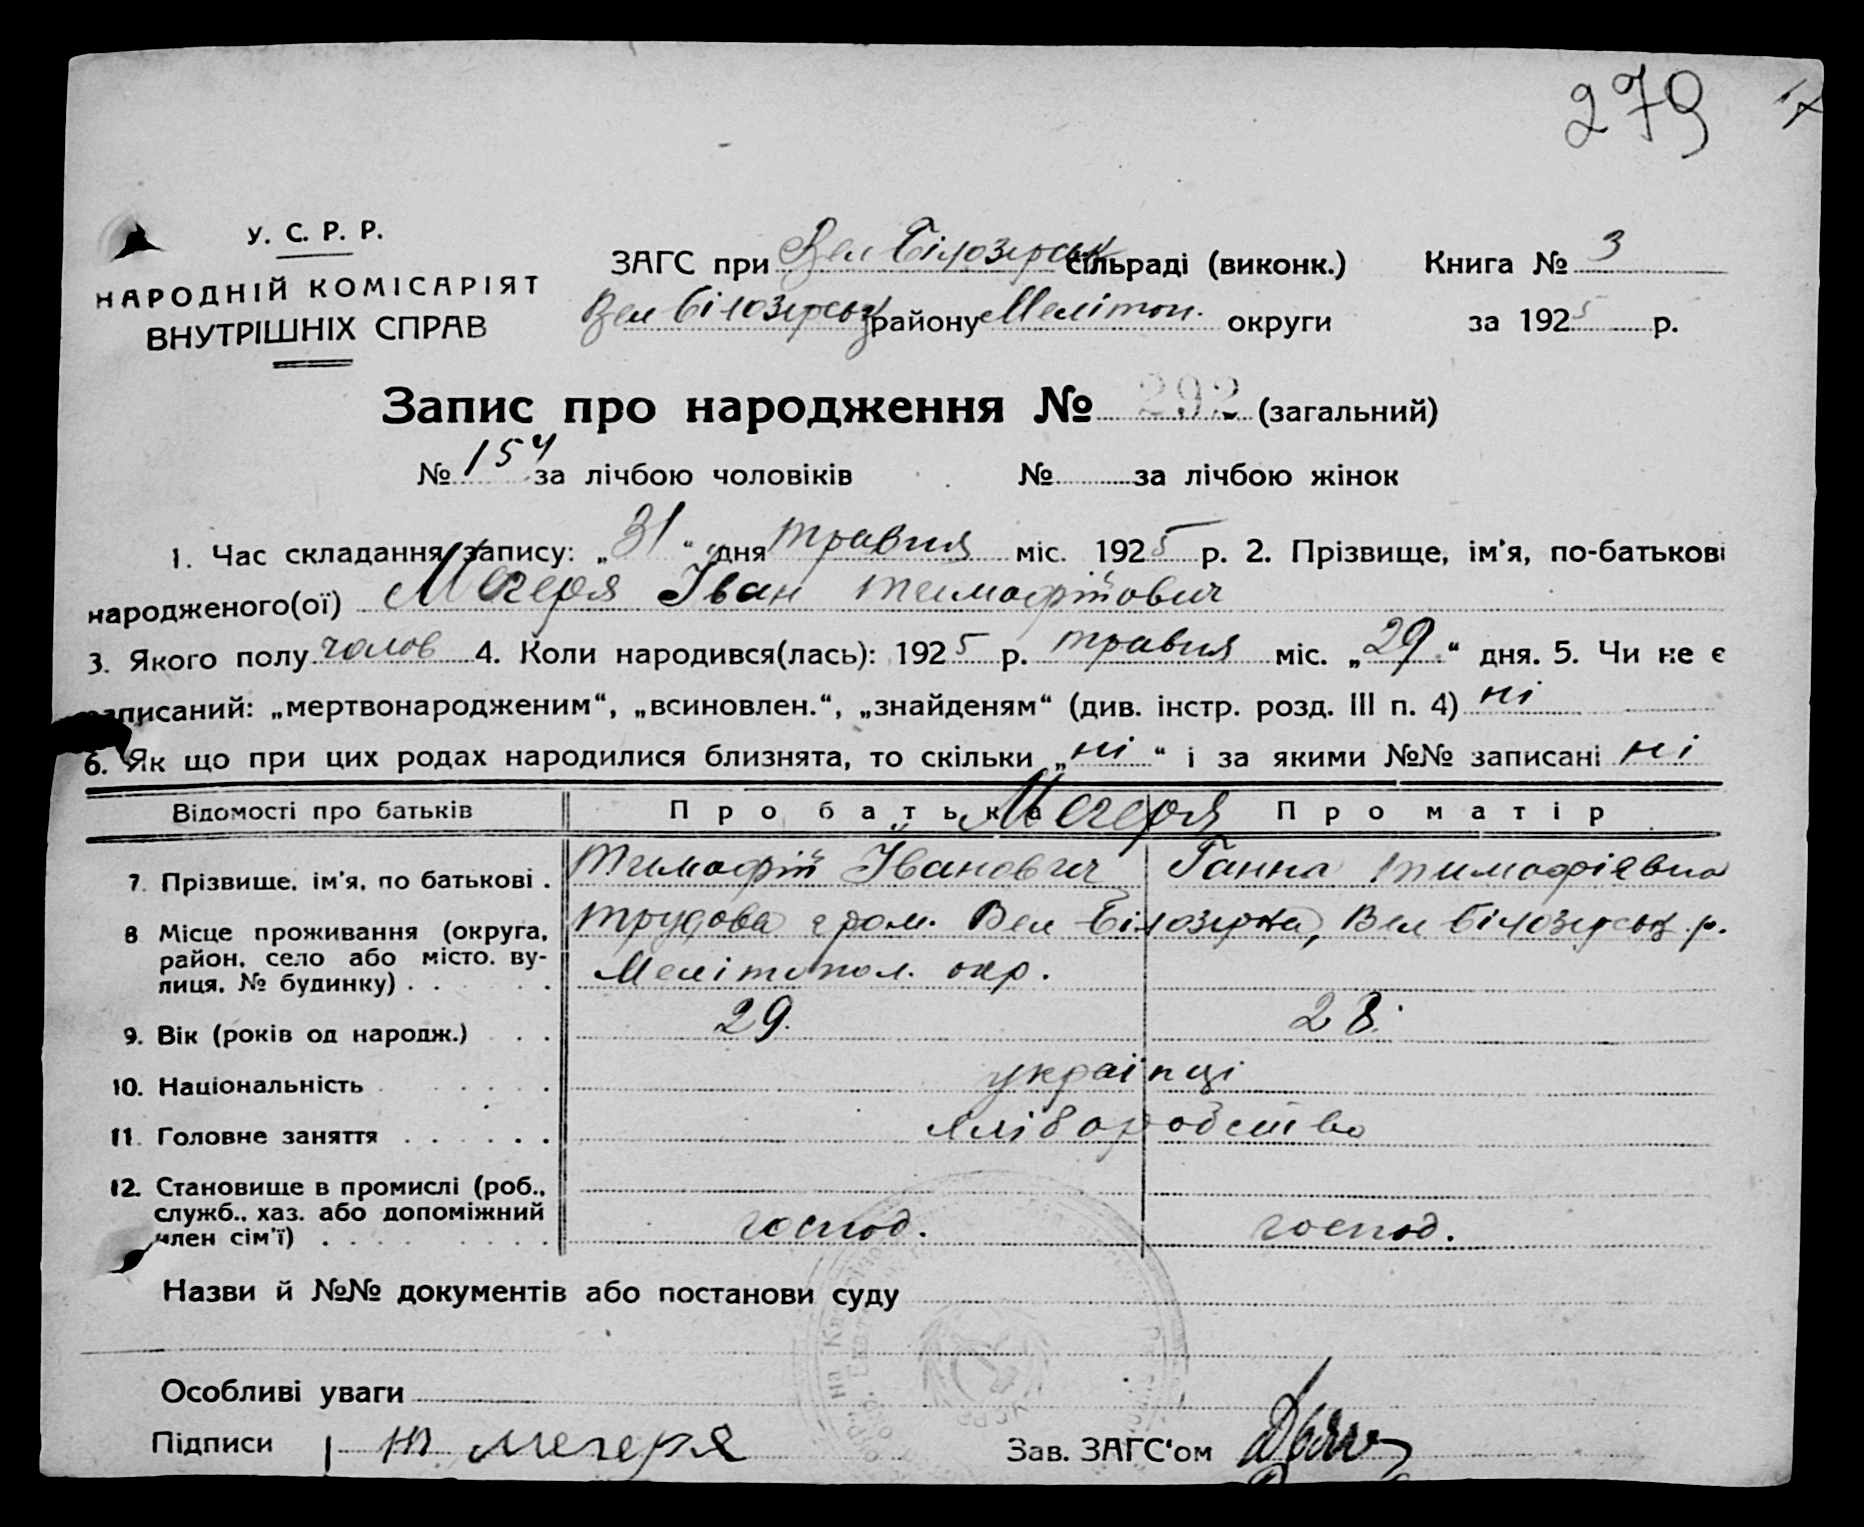 279 17
У. С. Р. Р.
НАРОДНІЙ КОМІСАРІЯТ
ВНУТРІШНІХ СПРАВ
ЗАГС при Вел Білозирськ сільраді (виконк.) Книга № 3
Вел Білозирськ району Мелітоп. округи за 1925 р.
Запис про народження № 292 (загальний)
№ 154 за лічбою чоловіків № за лічбою жінок
1. Час складання запису: „31“ дня травня міс. 1925 р. 2. Прізвище, ім'я, по-батькові
народженого(ої) Мегеря Іван Тимофійович
3. Якого полу чолов 4. Коли народився(лась): 1925 р. травня міс. „29“ дня. 5. Чи не є
записаний: „мертвонародженим“, „всиновлен.“, „знайденям“ (див. інстр. розд. III п. 4) ні
6. Як що при цих родах народилися близнята, то скільки „ні“ і за якими №№ записані ні
Відомості про батьків Про батька Про матір
Мегеря
7. Прізвище, ім'я, по батькові . Тимофій Іванович Ганна Тимофіявна
8 Місце проживання (округа, район, село або місто, вулиця, № будинку) . . . . Трудова гром. Вел Білозирка, Вел Білозирськ. р.
Мелітопол. окр.
9. Вік (років од народж.) . . 29. 28.
10. Національність . . . . . українці
11. Головне заняття . . . . . хліборобство
12. Становище в промислі (роб.,
служб., хаз. або допоміжний
член сім'ї) . . . . . . . . господ. господ.
Назви й №№ документів або постанови суду
Особливі уваги
Підписи Т Мегеря Зав. ЗАГС'ом